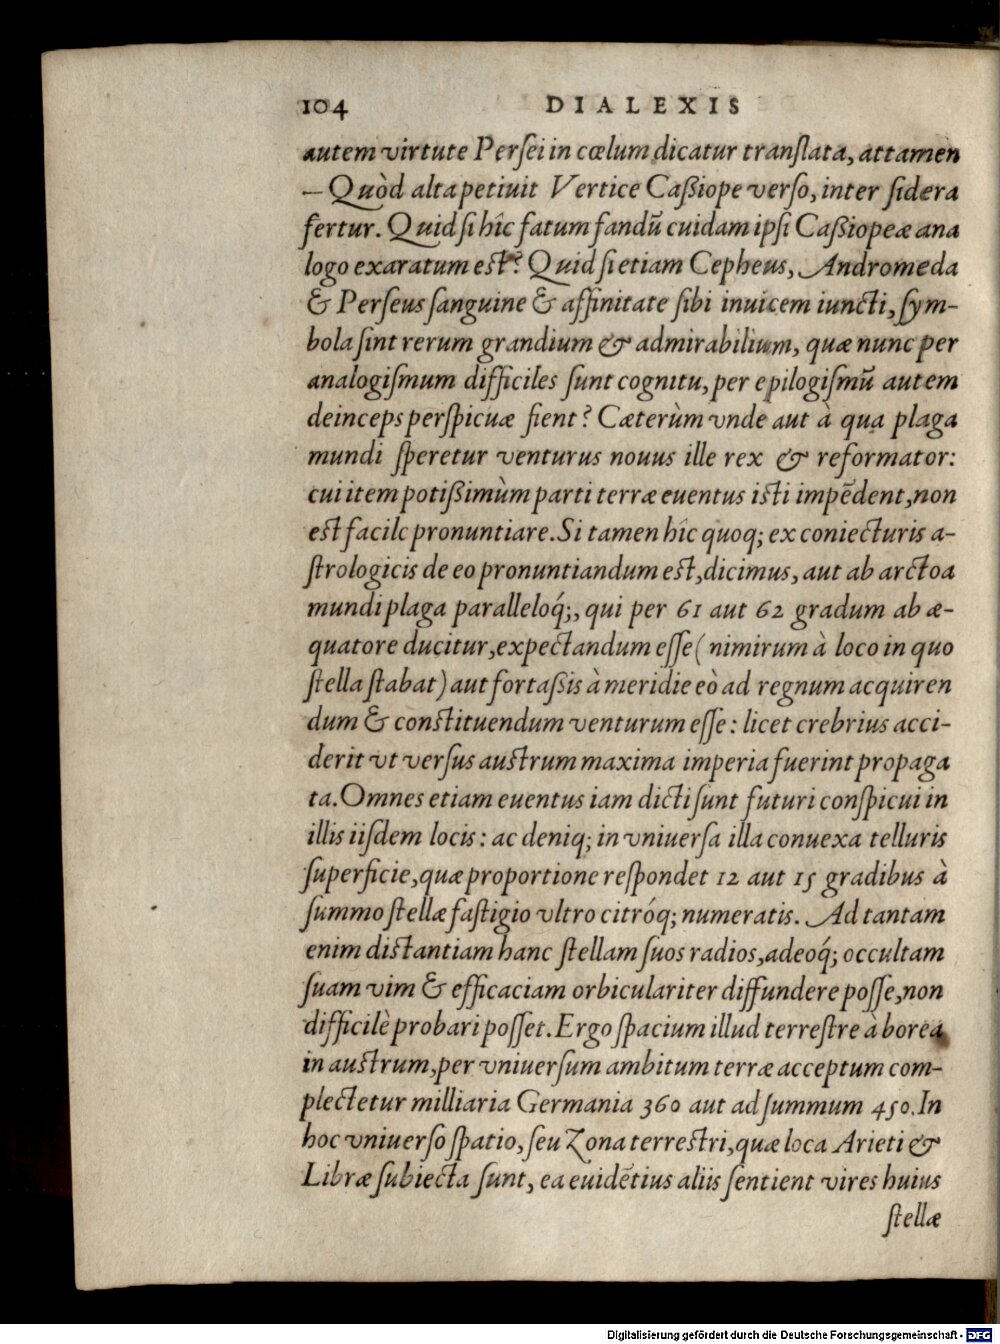 104 DIALEXIS
autem virtute Persei in cœlum dicatur translata, attamen
— Quòd alta petiuit Vertice Caßiope verso, inter sidera
fertur. Quid si hîc fatum fandū cuidam ipsi Caßiopeæ ana
logo exaratum est? Quid si etiam Cepheus, Andromeda
& Perseus sanguine & affinitate sibi inuicem iuncti, sym-
bola sint rerum grandium & admirabilium, quæ nunc per
analogismum difficiles sunt cognitu, per epilogismū autem
deinceps perspicuæ fient? Cæterùm vnde aut à qua plaga
mundi speretur venturus nouus ille rex & reformator:
cui item potißimùm parti terræ euentus isti impēdent, non
est facile pronuntiare. Si tamen hîc quoq; ex coniecturis a-
strologicis de eo pronuntiandum est, dicimus, aut ab arctoa
mundi plaga paralleloq́;, qui per 61 aut 62 gradum ab æ-
quatore ducitur, expectandum esse (nimirum à loco in quo
stella stabat) aut fortaßis à meridie eò ad regnum acquiren
dum & constituendum venturum esse: licet crebrius acci-
derit vt versus austrum maxima imperia fuerint propaga
ta. Omnes etiam euentus iam dicti sunt futuri conspicui in
illis iisdem locis: ac deniq; in vniuersa illa conuexa telluris
superficie, quæ proportione respondet 12 aut 15 gradibus à
summo stellæ fastigio vltro citróq; numeratis. Ad tantam
enim distantiam hanc stellam suos radios, adeoq́; occultam
suam vim & efficaciam orbiculariter diffundere posse, non
difficilè probari posset. Ergo spacium illud terrestre à borea
in austrum, per vniuersum ambitum terræ acceptum com-
plectetur milliaria Germania 360 aut ad summum 450. In
hoc vniuerso spatio, seu Zona terrestri, quæ loca Arieti &
Libræ subiecta sunt, ea euidētius aliis sentient vires huius
stellæ
Digitalisierung gefördert durch die Deutsche Forschungsgemeinschaft - DFG